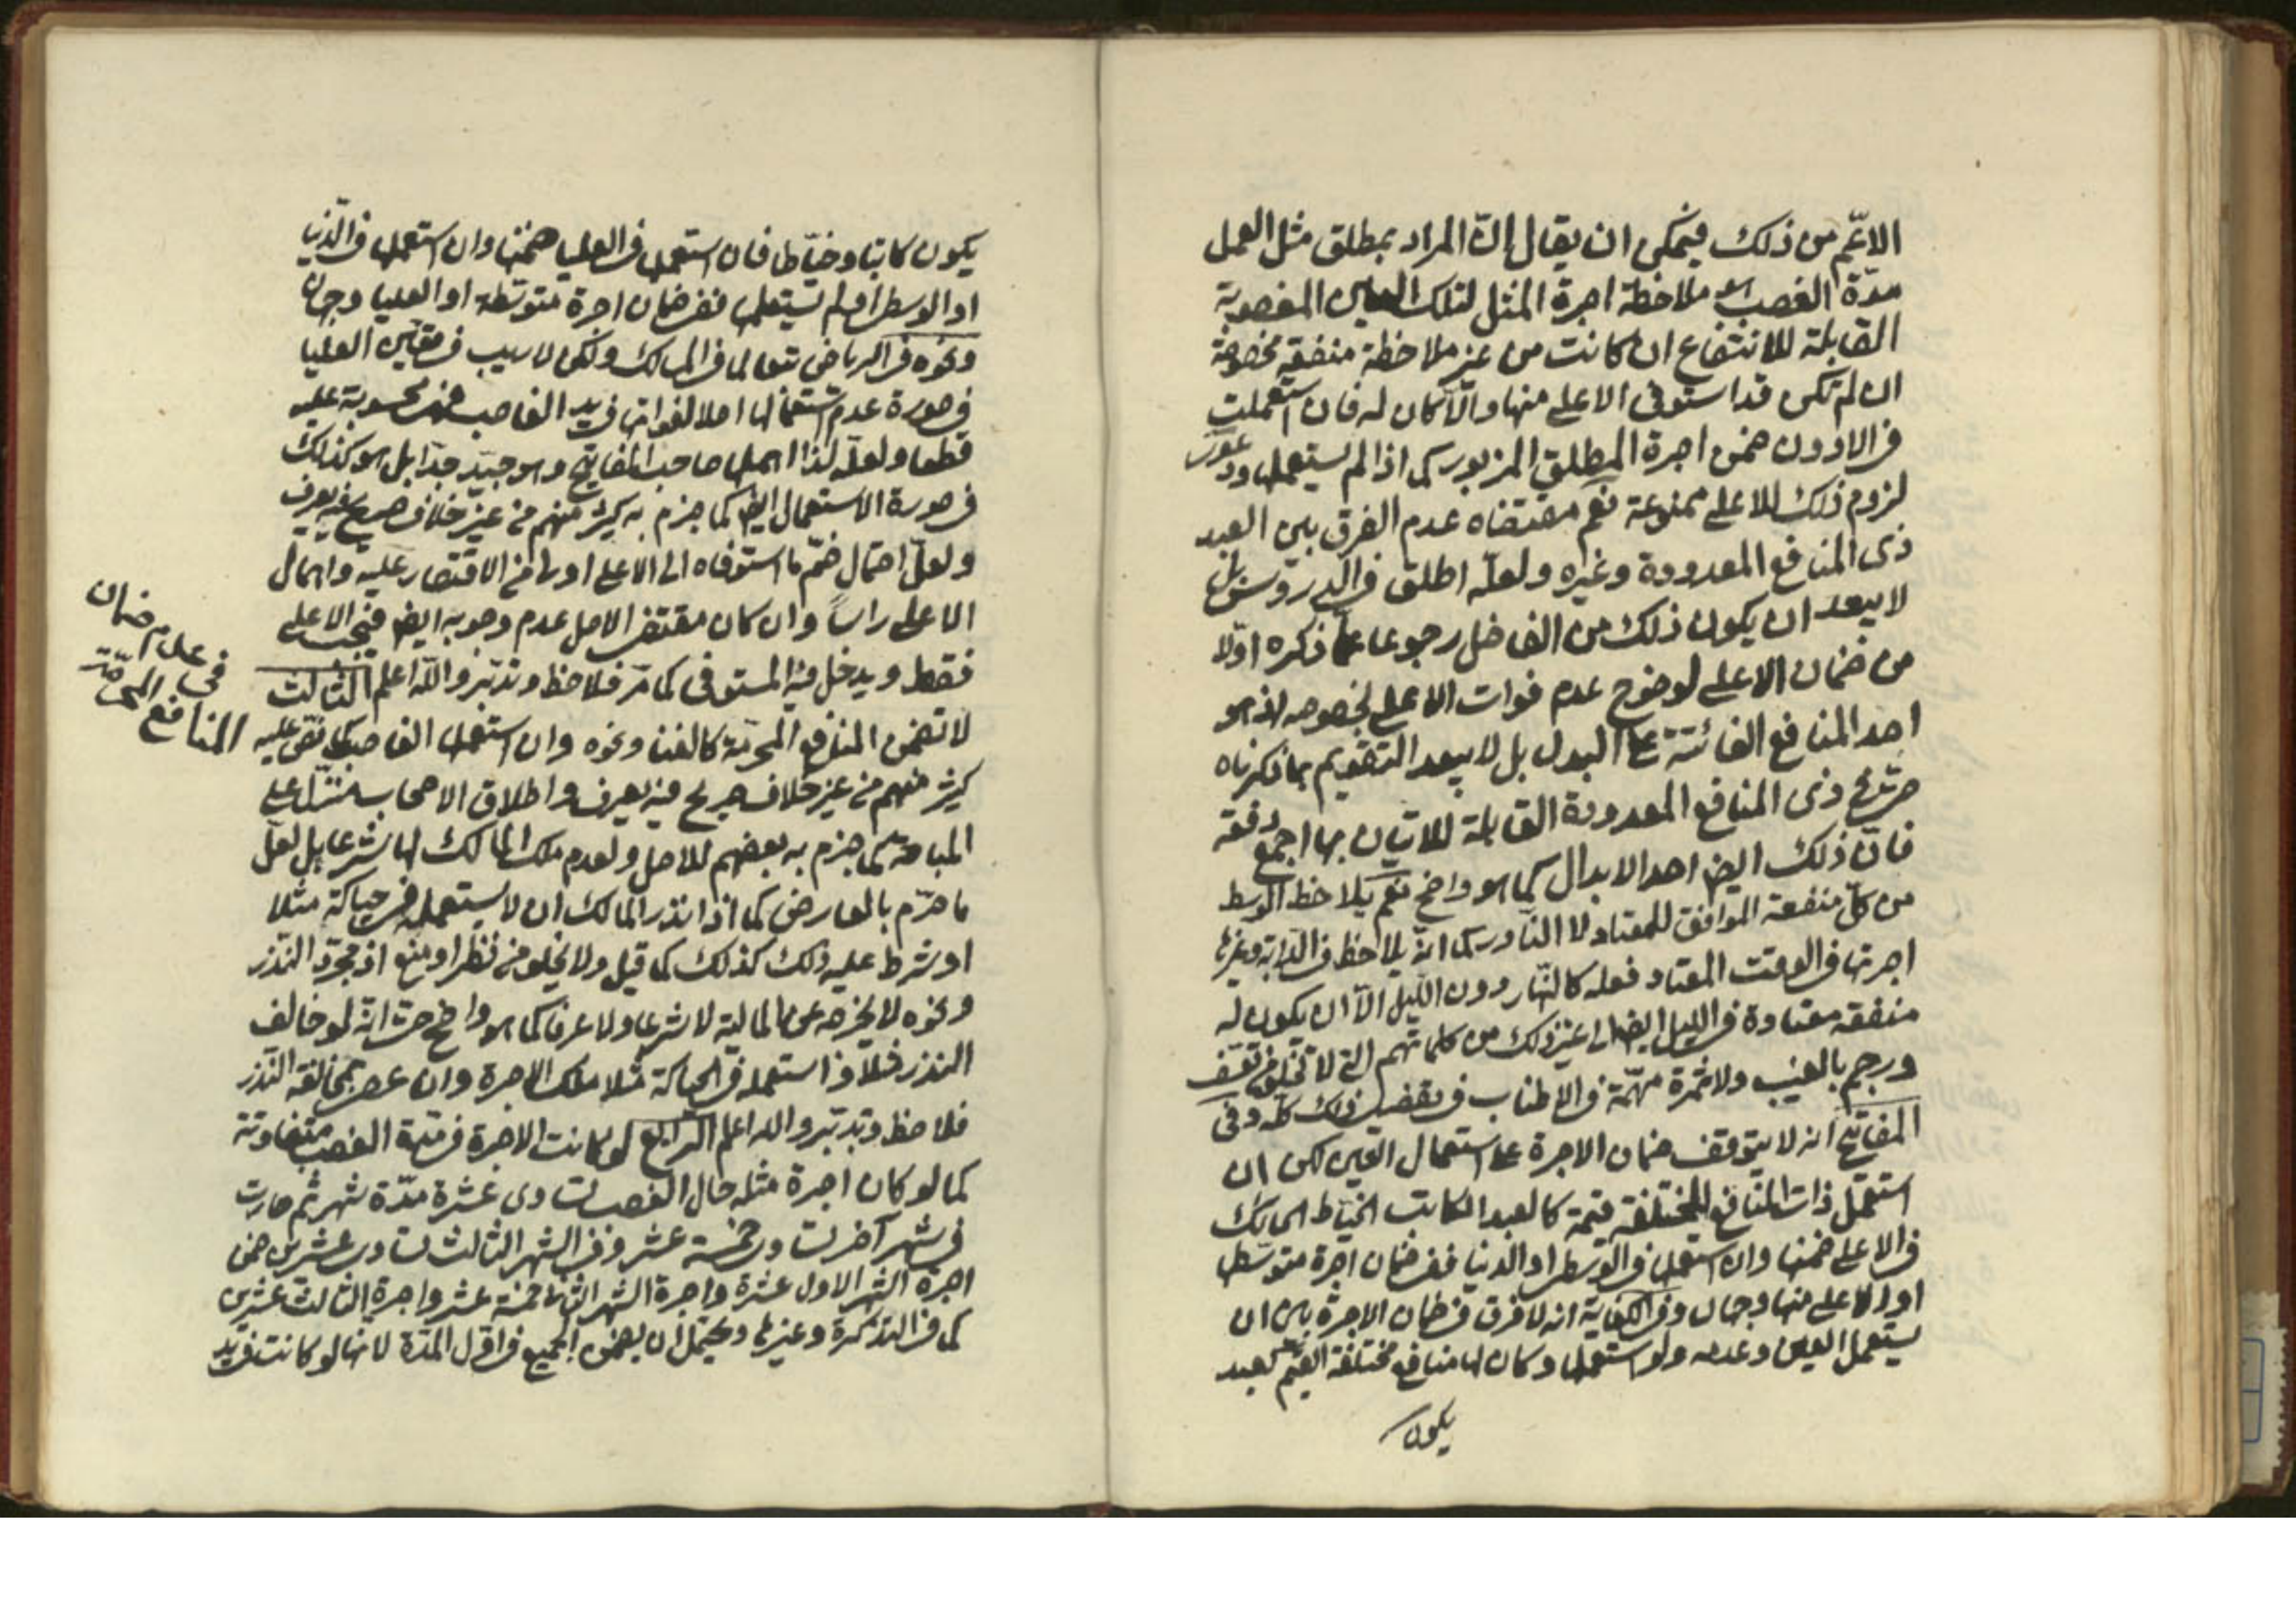 الاعّم من ذلك فيمكن ان يقال انّ المراد بمطلق مثل العمل
مدّة الغصب هو ملاحظة اجرة المثل لتلك العين المغصوبة
القابلة للانتفاع ان كانت من غير ملاحظة منفعة مخصوصة
ان لم تكن قد استوفى الاعلى منها والّا كان له فان استعملت
فى الادون ضمن اجرة المطلق المزبور كما اذا لم يستعمل ودعوى
لزوم ذلك للاعلى ممنوعة نعم مقتضاه عدم الفرق بين العبد
ذى المنافع المعدودة وغيره ولعلّه اطلق فى الدروس بل
لا يبعد ان يكون ذلك من الفاضل رجوعا عمّا ذكره اوّلا
من ضمان الاعلى لوضوح عدم فوات الاعلى بخصوصه اذ هو
احد المنافع الفائتة على البدل بل لا يبعد التقويم بما ذكرناه
حتّى فى ذى المنافع المعدودة القابلة للاتيان بها اجمع دفعة
فانّ ذلك ايضا احد الابدال كما هو واضح نعم يلاحظ الوسط
من كلّ منفعة الموافق للمعتاد لا النّادر كما انّه يلاحظ فى الدّابة وغيرها
اجرتها فى الوقت المعتاد فعله كالنّهار دون اللّيل الّا ان يكون له
منفعة معتادة فى الليل ايضا الى غير ذلك من كلماتهم التى لا تخلو من تعسّف
ورجم بالغيب ولا ثمرة مهمّة فى الاطناب فى تفصيل ذلك كلّه وفى
المفاتيح انه لا يتوقف ضمان الاجرة على استعمال العين لكن ان
استعمل ذات المنافع المختلفة قيمة كالعبد الكاتب الخيّاط الحائك
فى الاعلى ضمنها وان استعمل فى الوسطى او الدنيا ففى ضمان اجرة متوسّط
او الاعلى منها وجهان وفى الكفاية انه لا فرق فى ضمان الاجرة بين ان
يستعمل العين وعدمه ولو استعملها وكان لها منافع مختلفة القيم كعبد
يكون
يكون كاتبا وخيّاطا فان استعمل فى العليا ضمنها وان استعمل فى الدّنيا
او الوسطى او لم يستعمل ففى ضمان اجرة متوسّطة او العليا وجهان
ونحوه فى الرياض تبعا لما فى المسالك ولكن لا ريب فى تعيّن العليا
فى صورة عدم استعمالها اصلا لفواتها فى يد الغاصب فهى محسوبة عليه
قطعا ولعلّه لذا اهمله صاحب المفاتيح وهو جيّد جدّا بل هو كذلك
فى صورة الاستعمال ايضا كما جزم به كثير منهم من غير خلاف صريح فيه يعرف
ولعلّ احتمال ضمّ ما استوفاه الى الاعلى اولى من الاقتصار عليه واهمال
الاعلى راساً وان كان مقتضى الاصل عدم وجوبه ايضا فيجب الاعلى
فقط ويدخل فيه المستوفى كما مرّ فلاحظ وتدبّر والله اعلم الثّالث
لا تضمن المنافع المحرّمة كالغنا ونحوه وان استعمل الغاصب كما نصّ عليه
كثير منهم من غير خلاف صريح فيه يعرف واطلاق الاصحاب منزّل على
المباحة كما جزم به بعضهم للاصل ولعدم ملك المالك لها شرعا بل لعلّ
ما حرّم بالعارض كما اذا نذر المالك ان لا يستعمله فى حياكة مثلا
او شرط عليه ذلك كذلك كما قيل ولا يخلو من نظر او منع اذ مجرّد النّذر
ونحوه لا يخرجه عن الماليّة لا شرعا ولا عرفا كما هو واضح حتى انّه لو خالف
النذر مثلا واستعمله فى الحياكة مثلا ملك الاجرة وان عصى بمخالفة النّذر
فلاحظ وتدبّر والله اعلم الرّابع لو كانت الاجرة فى مدّة الغصب متفاوتة
كما لو كان اجرة مثله حال الغصب تساوى عشرة مدّة شهر ثم صارت
فى شهر آخر تساوى خمسة عشر وفى الشهر الثالث تساوى عشرين ضمن
اجرة الشهر الاول عشرة واجرة الشهر الثانى خمسة عشر واجرة الثالث عشرين
كما فى التذكرة وغيرها ويحتمل ان يضمن الجميع فى اوّل المدّة لانها لو كانت فى يد
فى عدم ضمان
المنافع المحرّمة